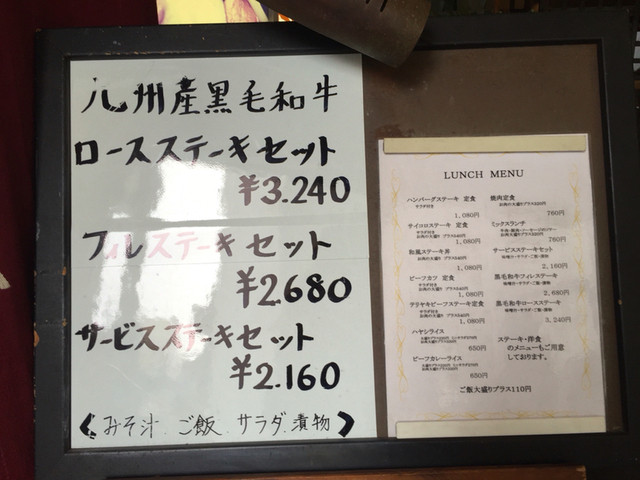 九州産黒毛和牛
ロースステーキセット
¥3.240
フィレステーキセット
¥2.680
サービスステーキセット
¥2.160
くみそ汁 ご飯 サラダ 漬物>
LUNCH MENU
ハンバーグステーキ 定食
サラダ付き
1,080円
サイコロステーキ 定食
サラダ付き
1,080円
和風ステーキ丼
1,080円
ビーフカツ 定食
サラダ付き
1,080円
テリヤキビーフステーキ定食
サラダ付き
1,080円
ハヤシライス
650円
ビーフカレーライス
650円
焼肉定食
760円
ミックスランチ
760円
サービスステーキセット
味噌汁・サラダ・ご飯・漬物
2,160円
黒毛和牛フィレステーキ
味噌汁・サラダ・ご飯・漬物
2,680円
黒毛和牛ロースステーキ
味噌汁・サラダ・ご飯・漬物
3,240円
ステーキ・洋食
のメニューもご用意
しております。
ご飯大盛りプラス110円